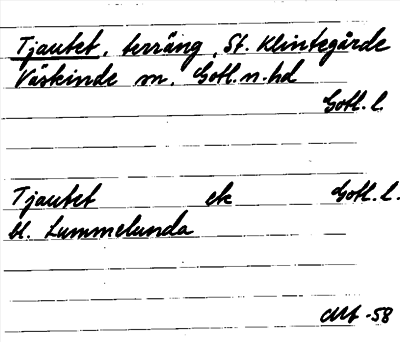 Tjautet, terräng, St. Klintegårde
Väskinde sn. Gotl. n. hd
Gotl. l.
Tjautet ek Gotl. l.
bl. Lummelunda
-58